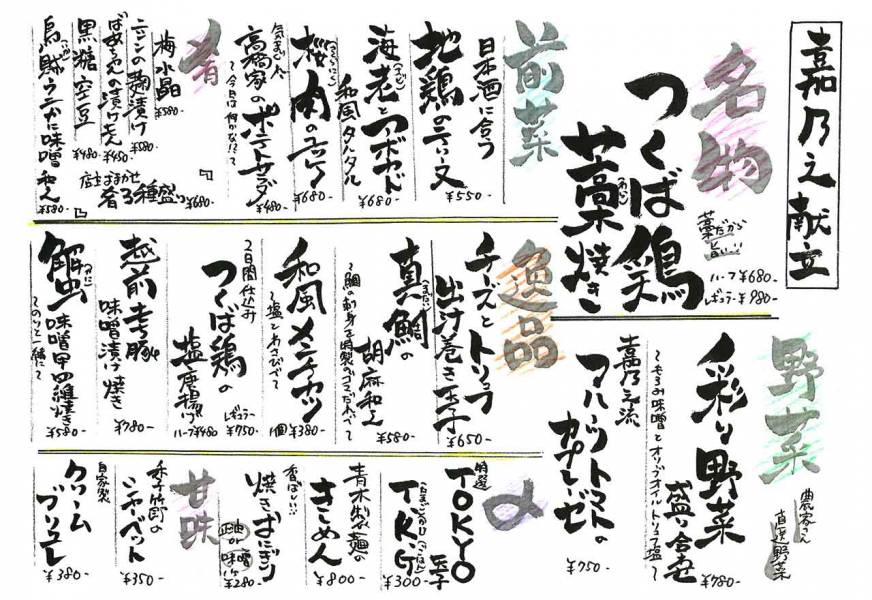 嘉乃之献立
名物
つくば鶏
藁焼き
藁だから
旨い!!
ハーフ ¥680-
レギュラー ¥980-
前菜
日本酒に合う
地鶏のテリーヌ
¥550-
海老とアボカド
和風タルタル
¥680-
桜肉のユッケ
¥680-
気まぐれ
高橋家のポテトサラダ
〜今日は何かな!?〜
¥480-
肴
梅水晶
¥580-
ニシンの麹漬け
¥580-
ばあちゃんの漬けもん
¥450-
黒糖空豆
¥480-
烏賊ウニかに味噌和え
¥580-
店主おまかせ
肴3種盛り
¥680-
野菜
農家さん
直送野菜
彩り野菜
盛り合せ
〜もろみ味噌とオリーブオイル トリュフ塩〜
¥780-
嘉乃之流
フルーツトマトの
カプレーゼ
¥750-
逸品
チーズとトリュフ
出汁巻き玉子
¥650-
真鯛の
胡麻和え
〜鯛の刺身を特製のゴマだれで〜
¥580-
和風メンチカツ
〜塩とわさびで〜
1個 ¥380-
2日間仕込み
つくば鶏の
塩唐揚げ
レギュラー
¥750-
ハーフ ¥480
越前もち豚
味噌漬け焼き
¥780-
蟹味噌甲羅焼き
〜のりと一緒に〜
¥580-
〆
特選
TOKYO
玉子
T.K.G
(たまごかけごはん)
¥300-
青木製麺の
きしめん
¥800-
香ばしい
焼きおにぎり
正油 or 味噌
1ヶ ¥280-
甘味
季節の
シャーベット
¥350-
自家製
クリーム
ブリュレ
¥380-